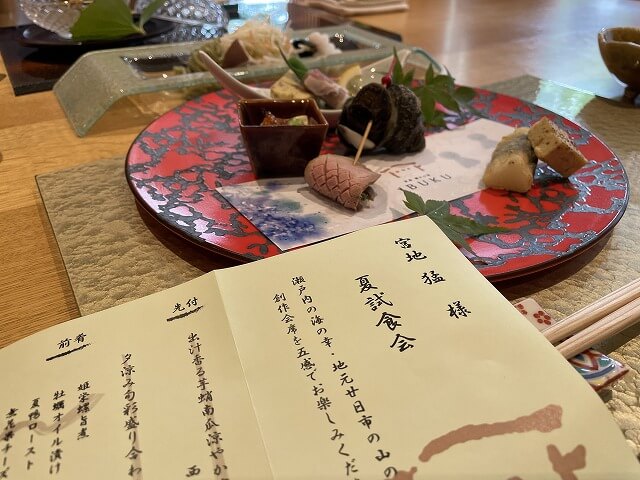 宮地 猛 様
夏試食会
瀬戸内の海の幸、地元廿日市の山の
創作会席を五感でお楽しみくだ
先付
出汁香る芋蛸南瓜涼やか
西
前肴
夕涼み旬彩盛り合わ
姫栄螺旨煮
牡蠣オイル漬け
夏鴨ロースト
無花果チーズ
BUKU